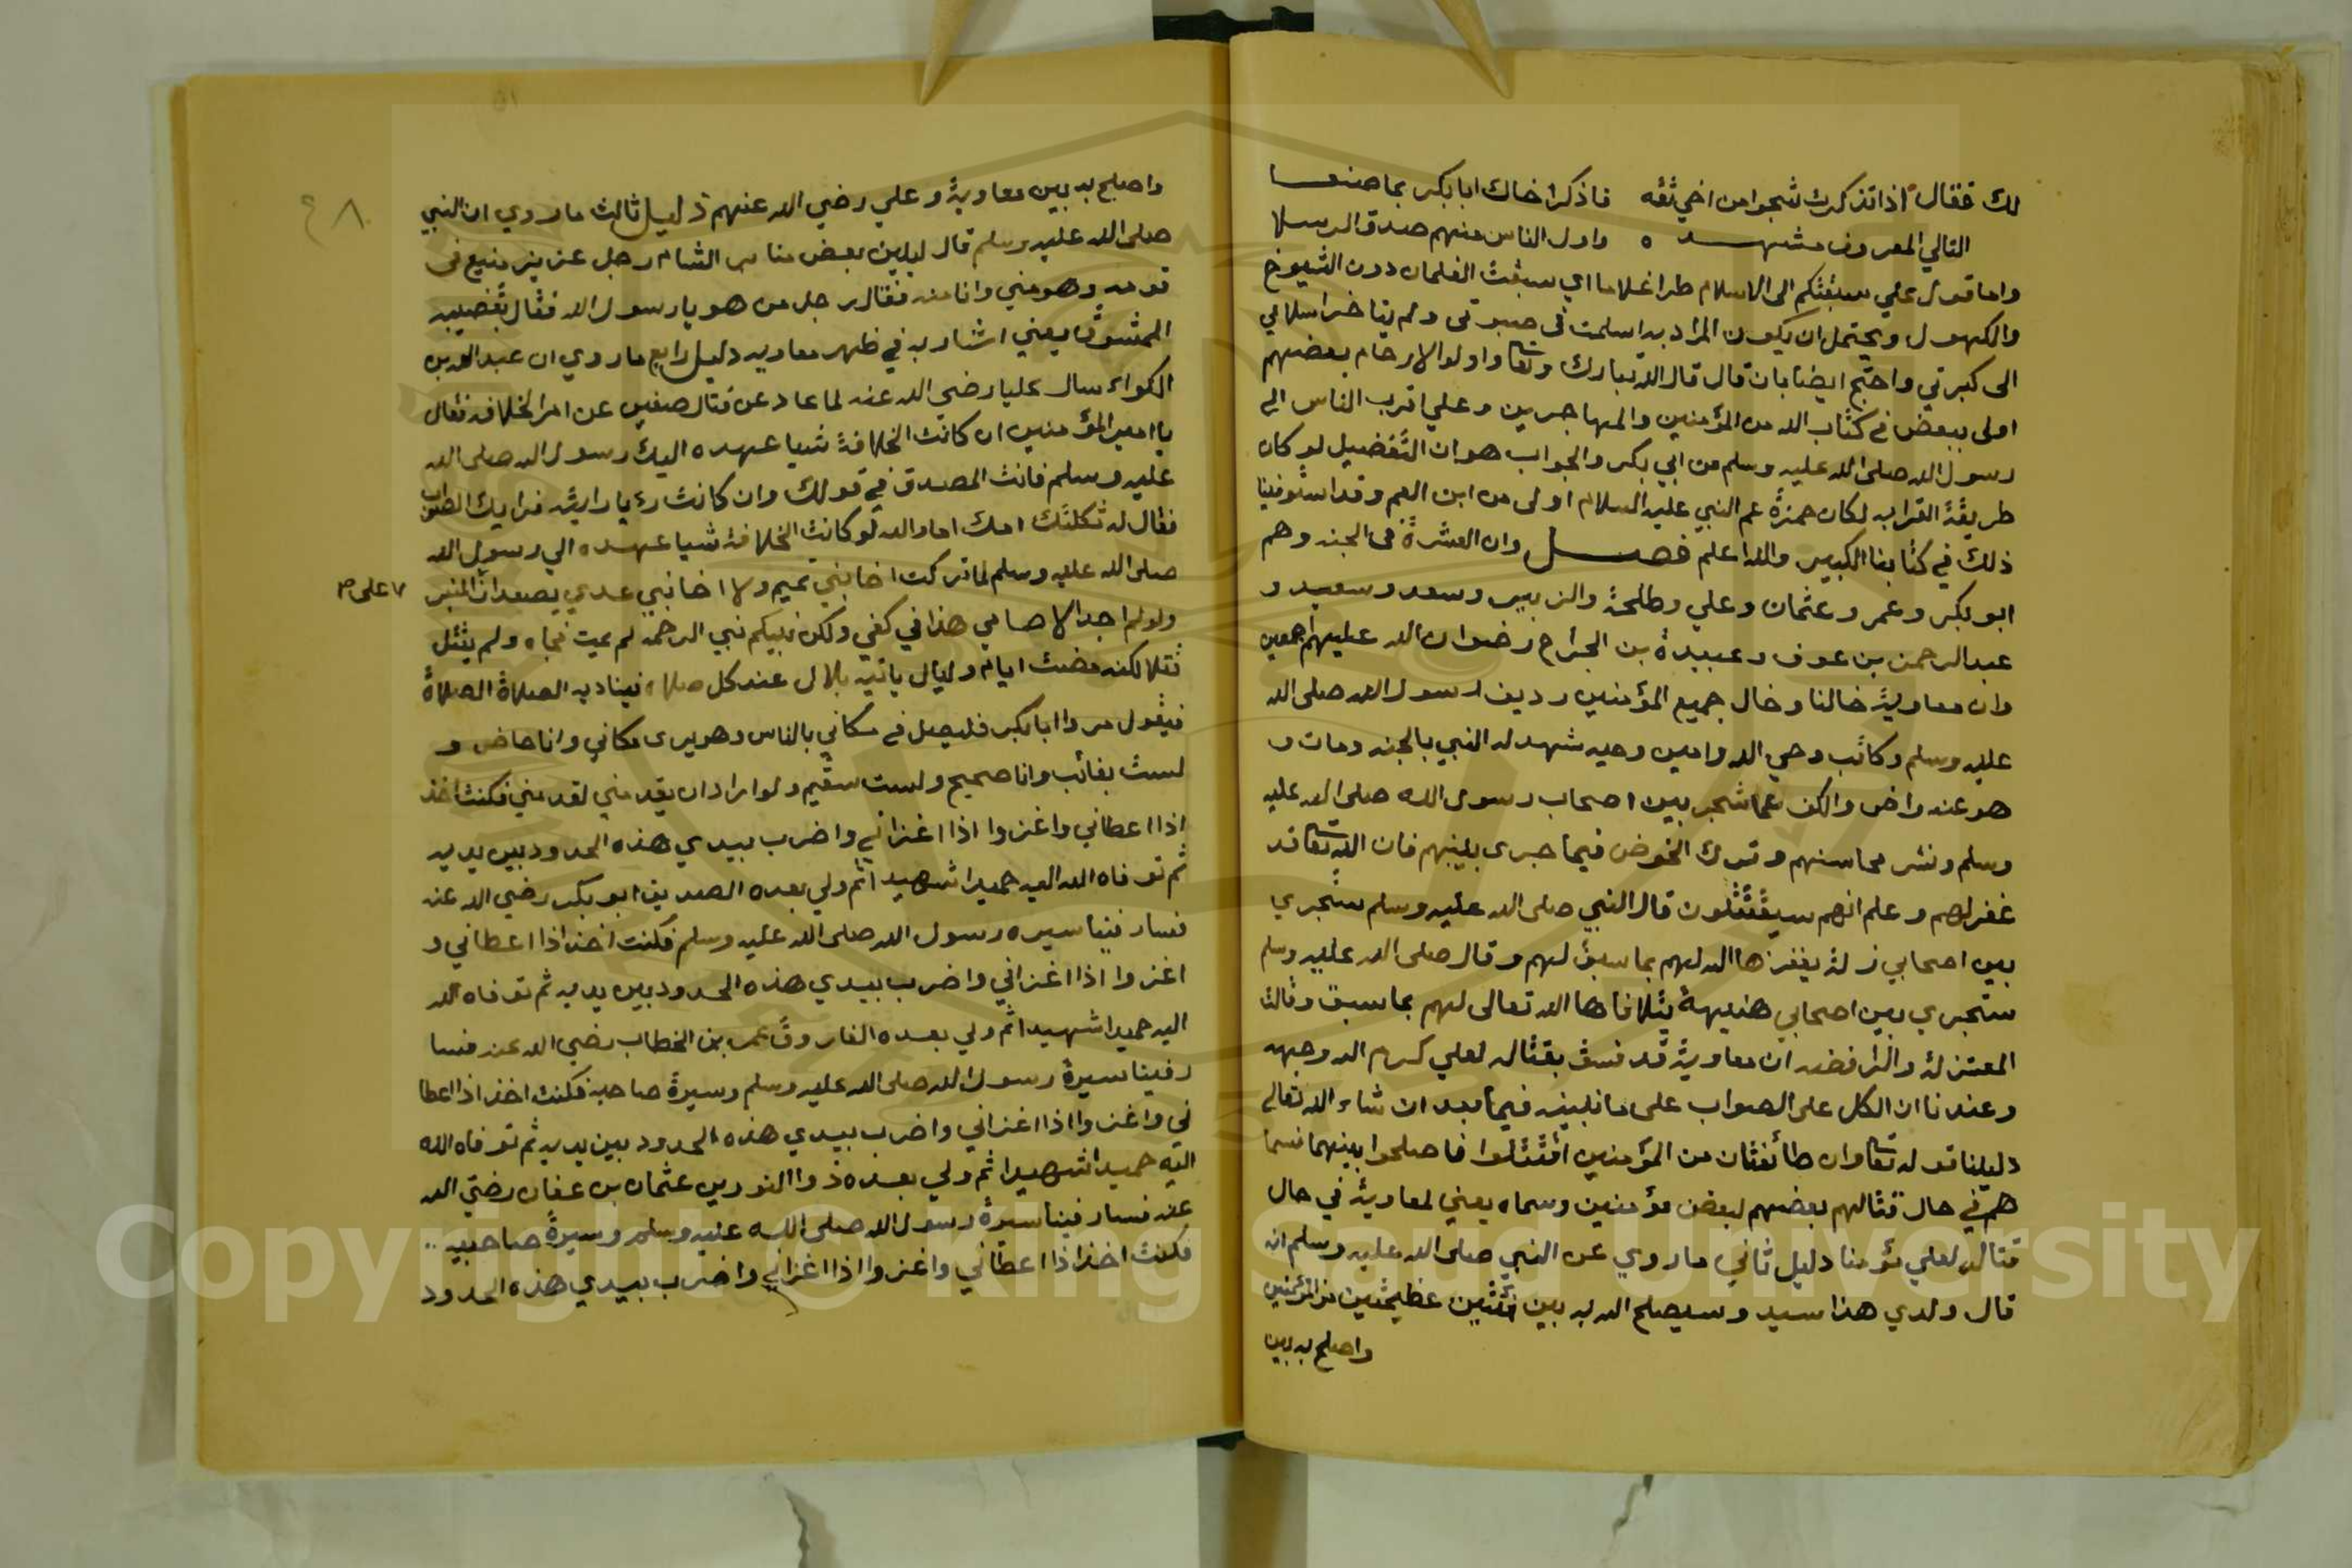 لك فقال اذا تذكرت شجوا من اخي ثقه فاذكر اخاك ابا بكر بما صنعا
التالي المعروف مشهده واول الناس منهم صدق الرسلا
واما قول علي سبقتكم الى الاسلام طرا غلاما اي سبقت الغلمان دون الشيوخ
والكهول ويحتمل ان يكون المراد به اسلمت في صبوتي ولم يتاخر اسلامي
الى كبرتي واحتج ايضا بان قال قال الله تبارك وتعا واولوا الارحام بعضهم
اولى ببعض في كتاب الله من المؤمنين والمهاجرين وعلي اقرب الناس الى
رسول الله صلى الله عليه وسلم من ابي بكر والجواب هو ان التفضيل لو كان
طريقة القرابه لكان حمزة عم النبي عليه السلام اولى من ابن العم وقد استوفينا
ذلك في كتابنا الكبير والله اعلم فصل وان العشرة في الجنه وهم
ابو بكر وعمر وعثمان وعلي وطلحة والزبير وسعد وسعيد و
عبد الرحمن بن عوف وعبيدة بن الجراح رضوان الله عليهم اجمعين
وان معاوية خالنا وخال جميع المؤمنين رديف رسول الله صلى الله
عليه وسلم وكاتب وحي الله وامين وحيه شهد له النبي بالجنه ومات و
هو عنه راض والكف عما شجر بين اصحاب رسول الله صلى الله عليه
وسلم ونشر محاسنهم وترك الخوض فيما جرى بينهم فان الله تعا قد
غفر لهم وعلم انهم سيقتتلون قال النبي صلى الله عليه وسلم ستجري
بين اصحابي زلة يغفرها الله لهم بما سبق لهم وقال صلى الله عليه وسلم
ستجري بين اصحابي هنيهة يتلافاها الله تعالى لهم بما سبق وقالت
المعتزلة والرافضه ان معاوية قد فسق بقتاله لعلي كرم الله وجهه
وعندنا ان الكل على الصواب على ما نبينه فيما بعد ان شاء الله تعالى
دليلنا قوله تعا وان طائفتان من المؤمنين اقتتلوا فاصلحوا بينهما فسما
هم في حال قتالهم بعضهم لبعض مؤمنين وسماه يعني لمعاوية في حال
قتاله لعلي مؤمنا دليل ثاني ما روي عن النبي صلى الله عليه وسلم انه
قال ولدي هذا سيد وسيصلح الله به بين فئتين عظيمتين من المؤمنين
واصلح به بين
٤٨
واصلح به بين معاوية وعلي رضي الله عنهم دليل ثالث ما روي ان النبي
صلى الله عليه وسلم قال ليلين بعض مناس الشام رجل عزيز منيع في
قومه وهو مني وانا منه فقال رجل من هو يا رسول الله فقال بقضيبه
الممشوق يعني اشار به في ظهر معاويه دليل رابع ما روي ان عبد الله بن
الكواء سال عليا رضي الله عنه لما عاد عن قتال صفين عن امر الخلافه فقال
يا امير المؤمنين ان كانت الخلافة شيا عهده اليك رسول الله صلى الله
عليه وسلم فانت المصدق في قولك وان كانت رؤيا رايته فرايك الصواب
فقال له ثكلتك امك اما والله لو كانت الخلافة شيا عهده الي رسول الله
صلى الله عليه وسلم لما تركت اخا بني تميم ولا اخا بني عدي يصعدان المنبر
على
ولو لم اجد الا صامي هذا في كفي ولكن نبيكم نبي الرحمه لم يمت فجاه ولم يقتل
قتلا لكنه مضت ايام وليال ياتيه بلال عند كل صلاه فيناديه الصلاة الصلاة
فيقول مروا ابا بكر فليصل في مكاني بالناس وهو يرى مكاني وانا حاضر و
لست بغائب وانا صحيح ولست سقيم ولو اراد ان يقدمني لقدمني فكنت اخذ
اذا اعطاني واغزوا اذا اغزاني واضرب بيدي هذه الحدود بين يديه
ثم توفاه الله اليه حميدا شهيدا ثم ولي بعده الصديق ابو بكر رضي الله عنه
فسار فينا سيره رسول الله صلى الله عليه وسلم فكنت اخذ اذا اعطاني و
اغزوا اذا اغزاني واضرب بيدي هذه الحدود بين يديه ثم توفاه الله
اليه حميدا شهيدا ثم ولي بعده الفاروق عمر بن الخطاب رضي الله عنه فسا
ر فينا سيرة رسول الله صلى الله عليه وسلم وسيرة صاحبه فكنت اخذ اذا اعطا
ني واغزوا اذا اغزاني واضرب بيدي هذه الحدود بين يديه ثم توفاه الله
اليه حميدا شهيدا ثم ولي بعده ذوا النورين عثمان بن عفان رضي الله
عنه فسار فينا سيرة رسول الله صلى الله عليه وسلم وسيرة صاحبيه
فكنت اخذ اذا اعطاني واغزوا اذا اغزاني واضرب بيدي هذه الحدود
Copyright © King Saud University